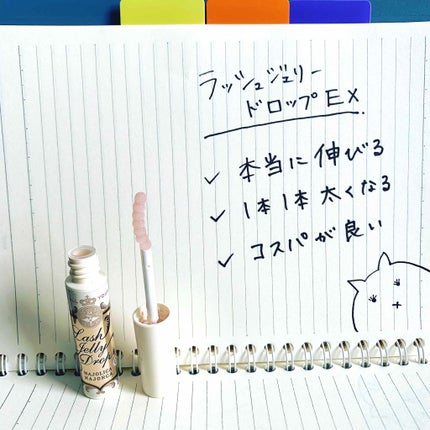 ラッシュジェリー
ドロップEX
✓ 本当に伸びる
✓ 1本1本太くなる
✓ コスパが良い
Lash
Jelly
Drop
MAJOLICA
MAJORCA